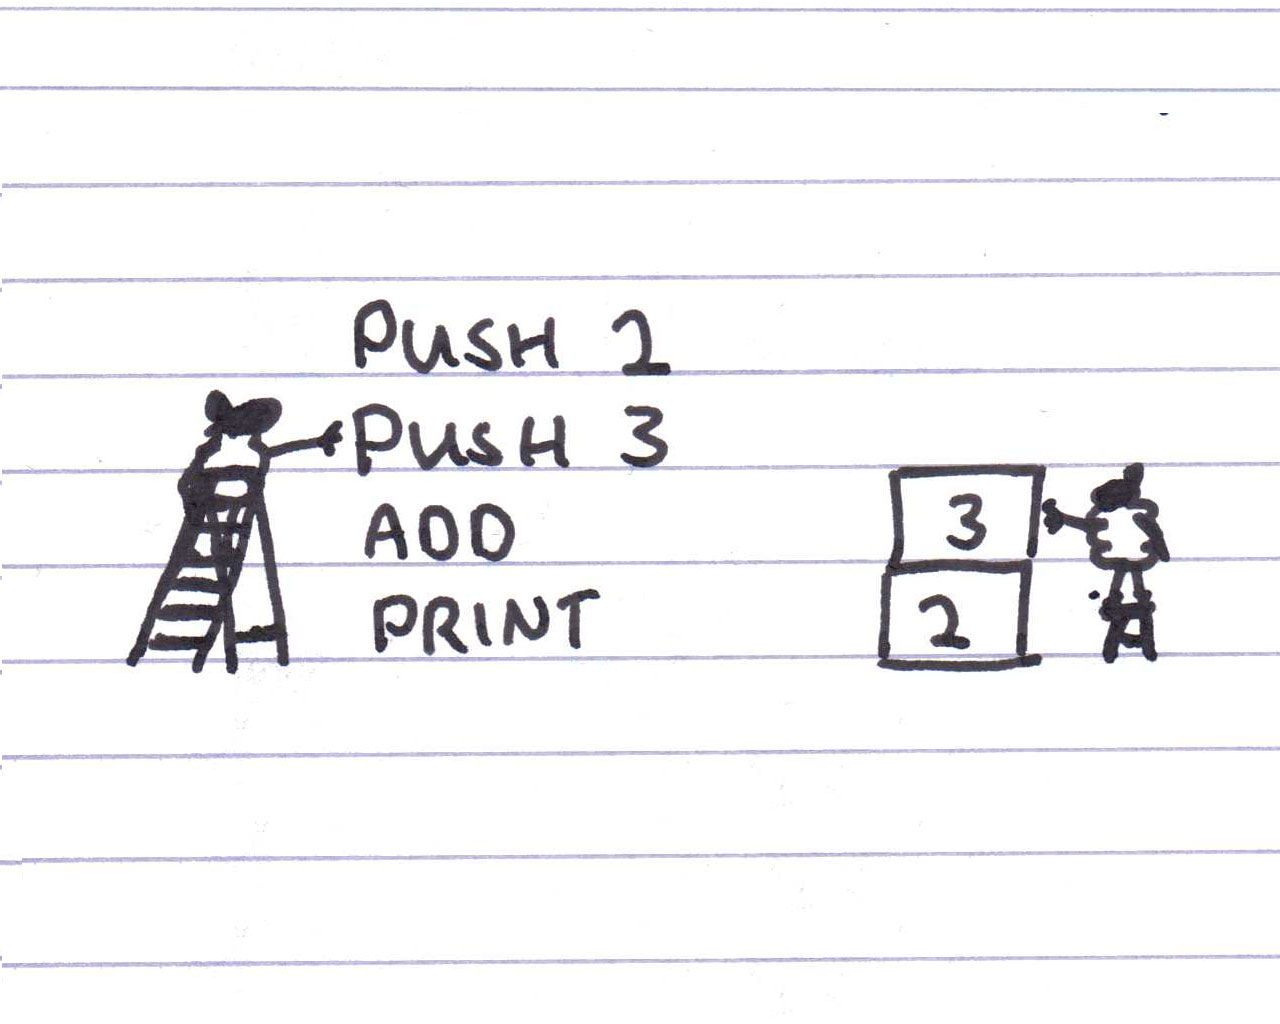 PUSH 2
PUSH 3
ADD
PRINT
3
2